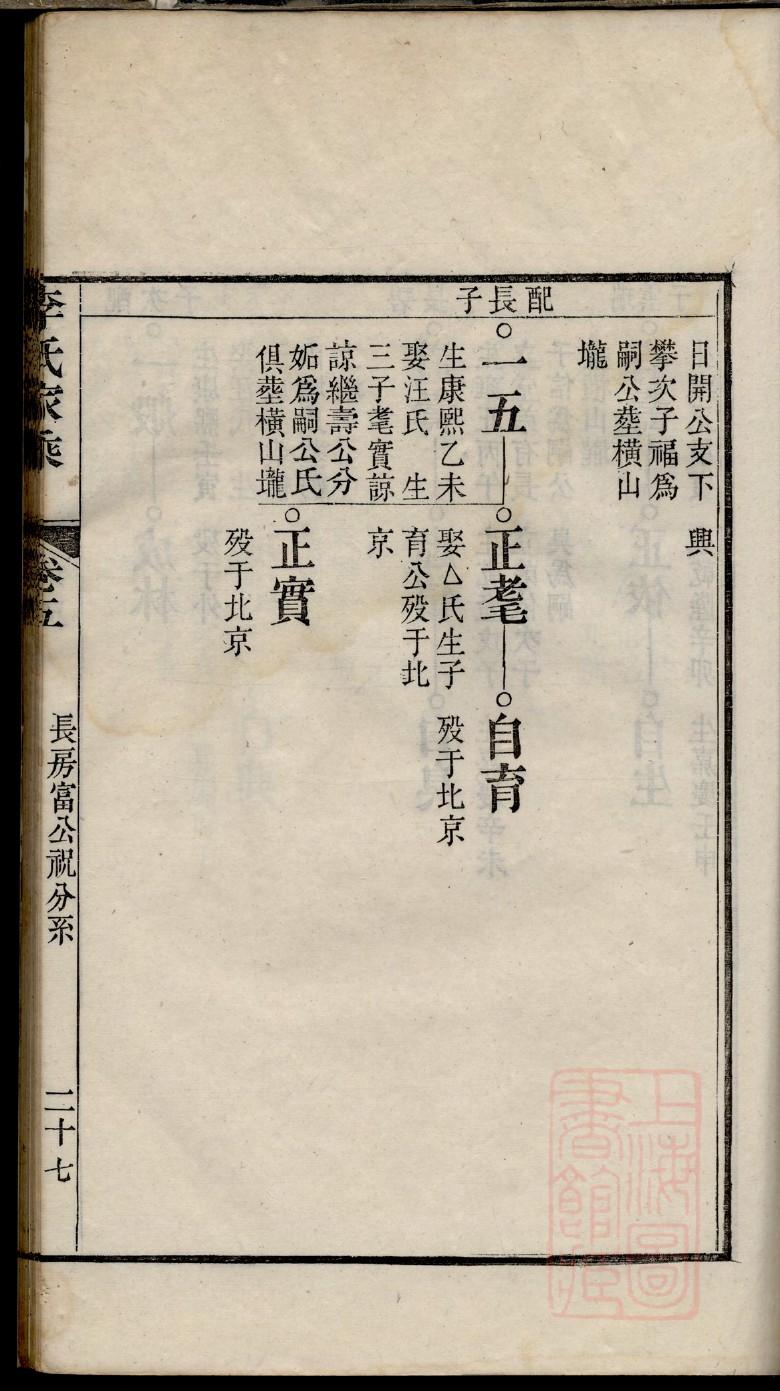 配長子
日開公支下　興
攀次子福爲
嗣公塟橫山
壠
一五
生康熙乙未
娶汪氏　生
三子耄實諒
諒繼壽公分
妬爲嗣公氏
俱塟橫山壠
正耄
娶△氏生子
育公歿于北
京
自育
歿于北京
正實
歿于北京
李氏家乘
卷五
長房富公祝分系
二十七
上海圖書館藏